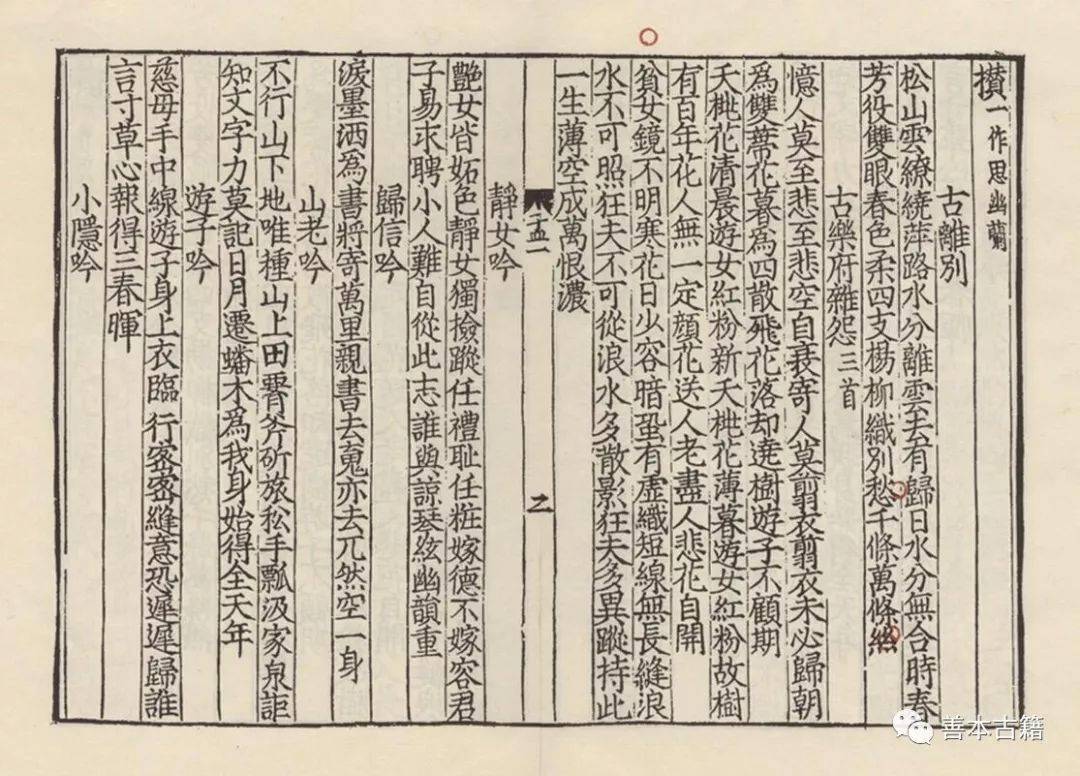 攢一作思幽蘭
古離別
松山雲繚繞萍路水分離雲去有歸日水分無合時春
芳役雙眼春色柔四支楊柳織別愁千條萬條絲
古樂府雜怨三首
憶人莫至悲至悲空自衰寄人莫翦衣翦衣未必歸朝
為雙蔕花暮為四散飛花落却遶樹遊子不顧期
夭桃花清晨遊女紅粉新夭桃花薄暮遊女紅粉故樹
有百年花人無一定顔花送人老盡人悲花自開
貧女鏡不明寒花日少容暗蛩有虛織短線無長縫浪
水不可照狂夫不可從浪水多散影狂夫多異蹤持此
一生薄空成萬恨濃
靜女吟
艷女皆妬色靜女獨撿蹤任禮恥任粧嫁德不嫁容君
子易求聘小人難自從此志誰與諒琴絃幽韻重
歸信吟
淚墨洒爲書將寄萬里親書去䰟亦去兀然空一身
山老吟
不行山下地唯種山上田腎斧斫旅松手瓢汲家泉詎
知文字力莫記日月遷蟠木爲我身始得全天年
遊子吟
慈母手中線遊子身上衣臨行密密縫意恐遲遲歸誰
言寸草心報得三春暉
小隱吟
善本古籍